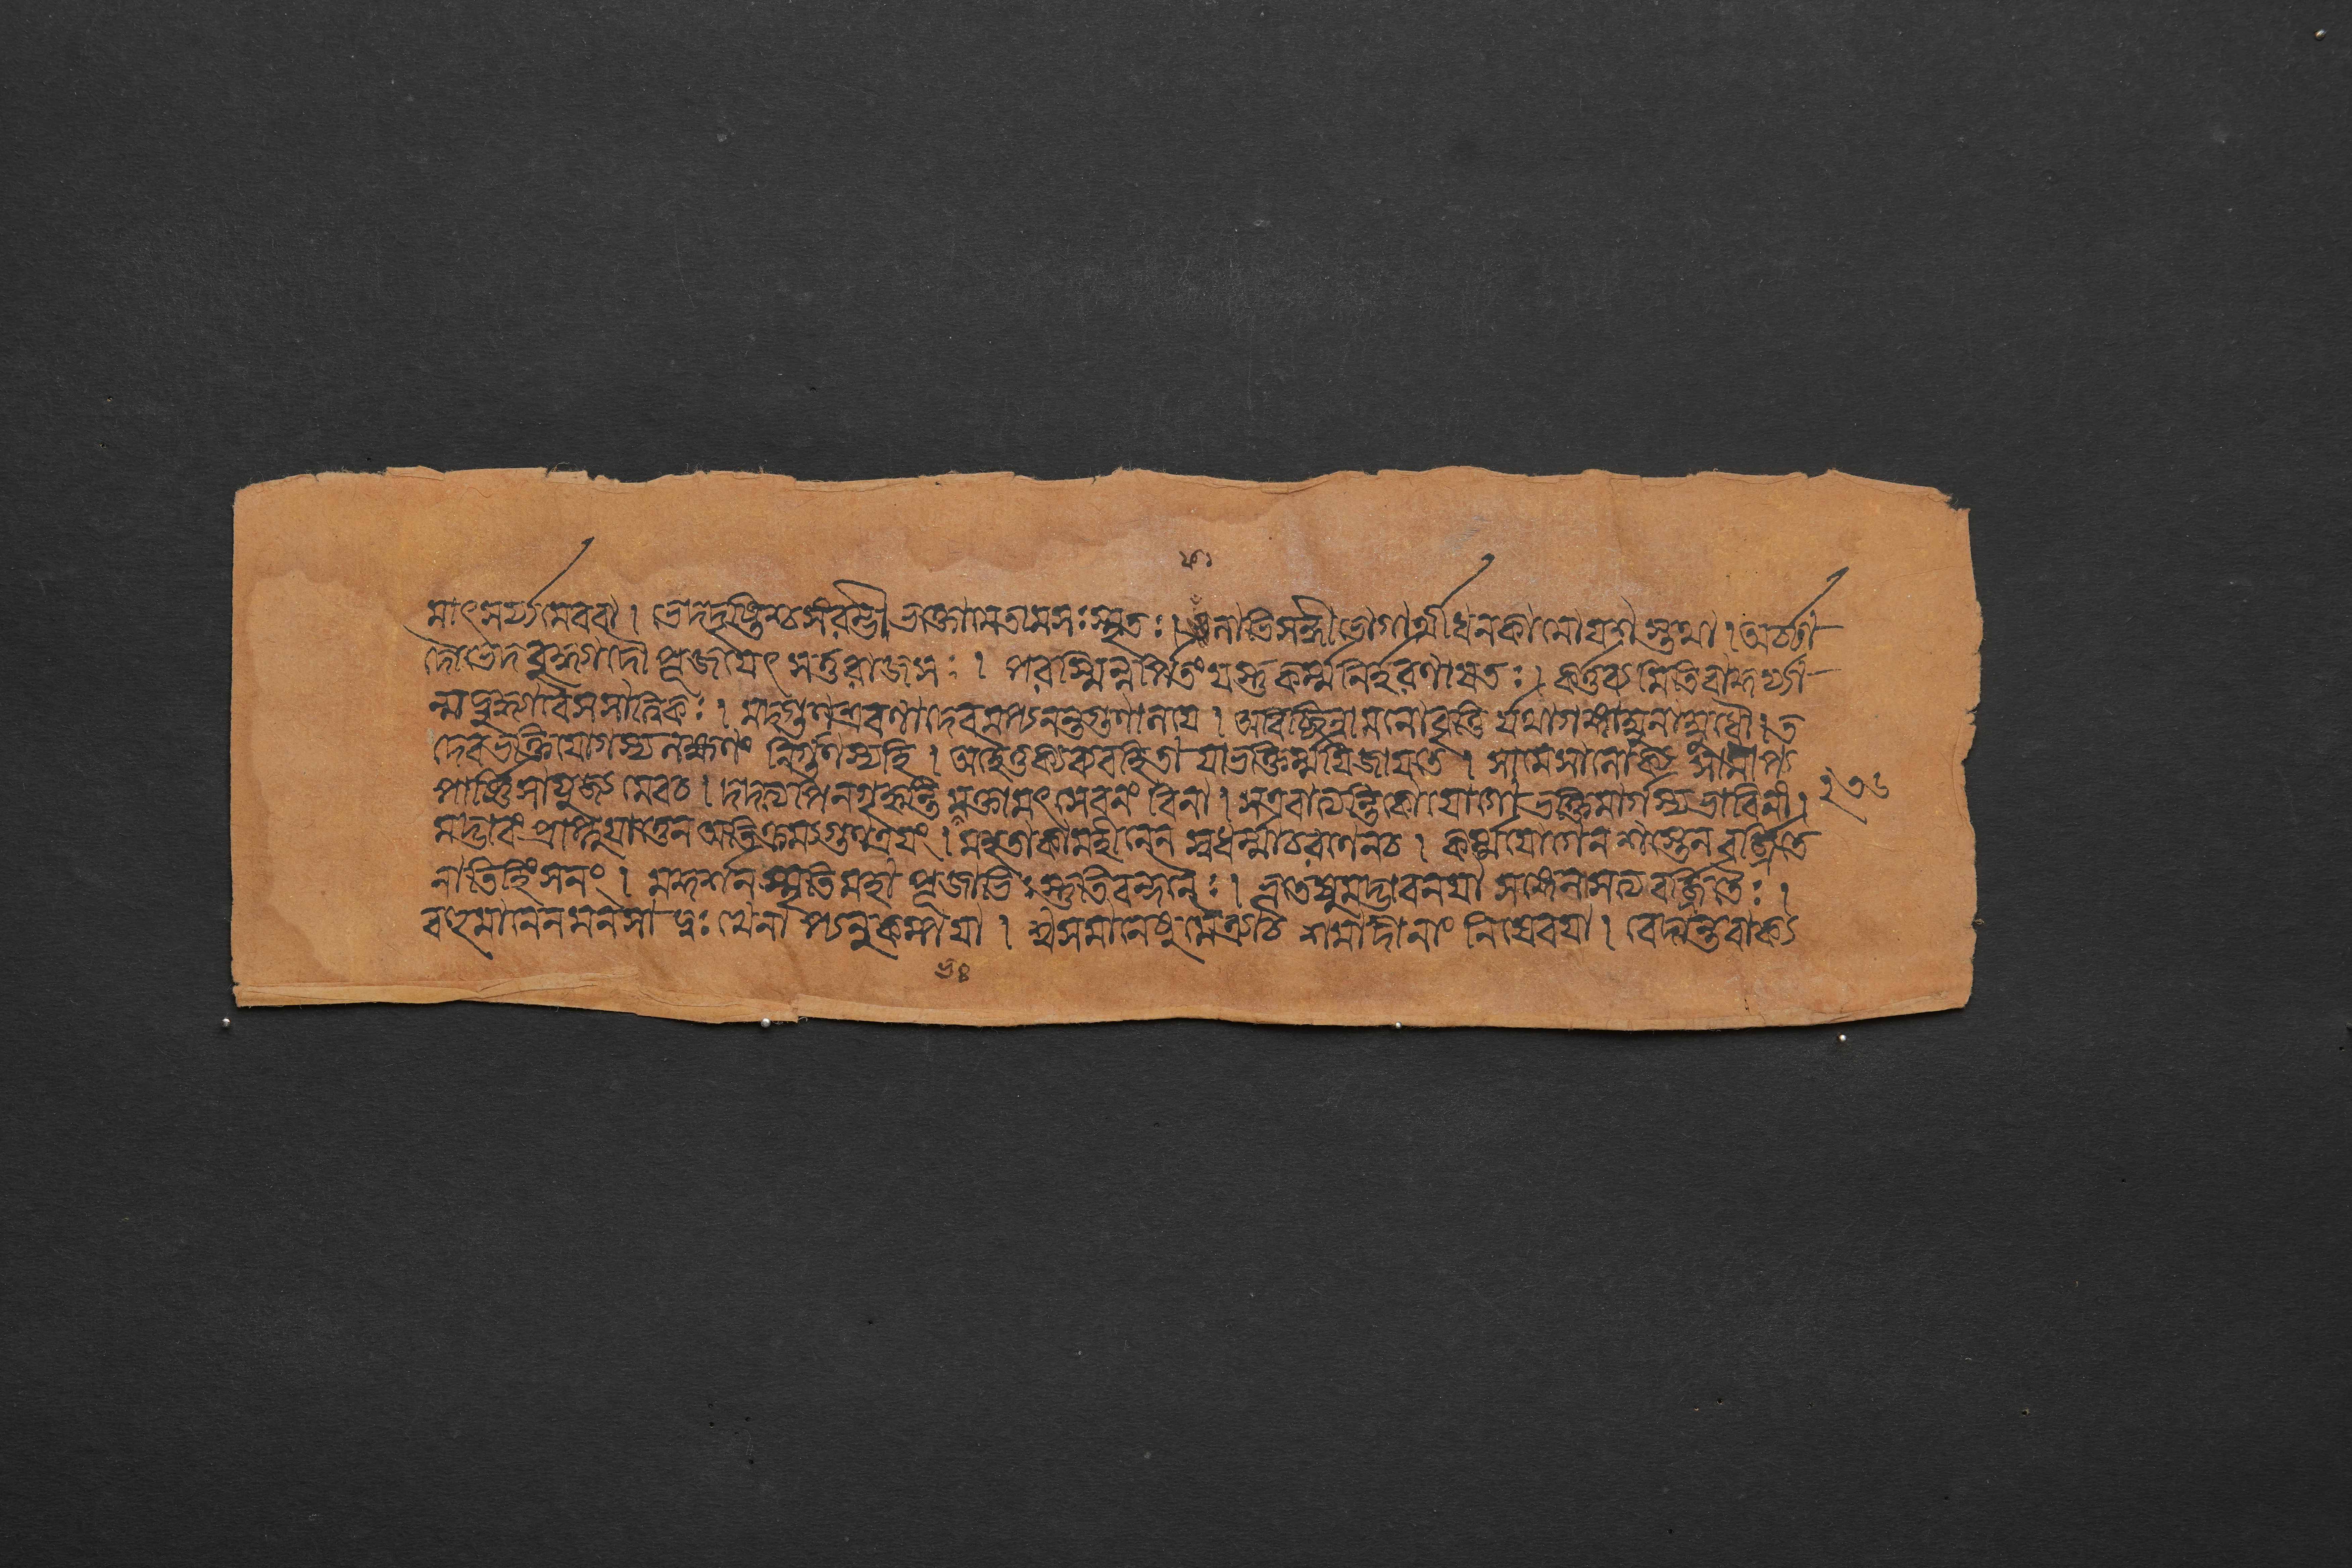 মাৎসর্য্যমেববা । ভেদদৃষ্টিশ্চসংরম্ভী ভক্তোমেতামসঃস্মৃতঃ । ফলাভিসন্ধী ভোগার্থী ধনকামো যশস্তথা । অর্চ্চা
দৌভেদবুদ্ধ্যাদৌ পূজয়েৎ সতু রাজসঃ । পরস্মিন্নর্পিতং যস্তু কর্ম্মনির্হরণায়তঃ । কর্ত্তব্যমিতিবাকুর্য্যা
ন্মদ্বুদ্ধ্যাবৈসসাত্ত্বিকঃ । মদ্গুণশ্রবণাদেবময্যনন্তগুণালয়ে । অবিচ্ছিন্নামনোবৃত্তি র্যথাগঙ্গাম্বুনোম্বুধৌ । ত
দেবভক্তিযোগস্য লক্ষণং নির্গুণস্যহি । অহৈতুক্যব্যবহিতা যাভক্তির্ম্ময়িজায়তে । সামেসালোক্য সামীপ্য
সার্ষ্টিসাযুজ্য মেবচ । দদাত্যপিনগৃহ্ণন্তি ভক্তামৎসেবনং বিনা । সএবাত্যন্তিকো যোগো ভক্তিমার্গস্যভাবিনী । ২৭৬
মদ্ভাবং প্রাপ্নুয়াত্তেন অতিক্রম্যগুণত্রয়ং । মহতাকামহীনেন স্বধর্ম্মাচরণেনচ । কর্ম্মযোগেন শস্তেন বর্জিতে
নাভিহিংসনং । মদ্দর্শন স্মৃতিমহা পূজাভিঃ স্তুতিবন্দনৈঃ । ভূতেষুমদ্ভাবনয়া সঙ্গেনাসত্যবর্জিতৈঃ ।
বহুমানেনমনসা দুঃখেনা প্যনুকম্পয়া । স্বসমানেষুমৈত্র্যাচ শমাদীনাং নিষেবয়া । বেদান্তবাক্য